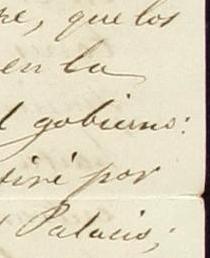 re, que los
en la
l gobierno:
siré por
l Palacio;